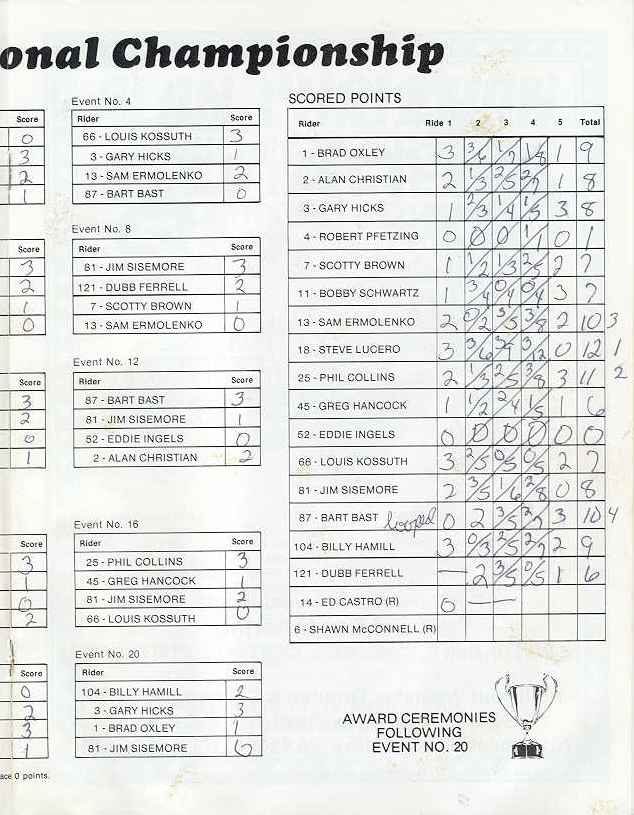 onal Championship
Score
0
3
2
1
Score
3
2
1
0
Score
3
2
0
1
Score
3
1
0
2
Score
0
2
3
1
ace 0 points.
Event No. 4
Rider Score
66 - LOUIS KOSSUTH 3
3 - GARY HICKS 1
13 - SAM ERMOLENKO 2
87 - BART BAST 0
Event No. 8
Rider Score
81 - JIM SISEMORE 3
121 - DUBB FERRELL 2
7 - SCOTTY BROWN 1
13 - SAM ERMOLENKO 0
Event No. 12
Rider Score
87 - BART BAST 3
81 - JIM SISEMORE 1
52 - EDDIE INGELS 0
2 - ALAN CHRISTIAN 2
Event No. 16
Rider Score
25 - PHIL COLLINS 3
45 - GREG HANCOCK 1
81 - JIM SISEMORE 2
66 - LOUIS KOSSUTH 0
Event No. 20
Rider Score
104 - BILLY HAMILL 2
3 - GARY HICKS 3
1 - BRAD OXLEY 1
81 - JIM SISEMORE 0
SCORED POINTS
Rider Ride 1 2 3 4 5 Total
1 - BRAD OXLEY 3 3/6 1/7 1/8 1 9
2 - ALAN CHRISTIAN 2 1/3 2/5 2/7 1 8
3 - GARY HICKS 1 2/3 1/4 1/5 3 8
4 - ROBERT PFETZING 0 0 0 1/1 0 1
7 - SCOTTY BROWN 1 1/2 1/3 2/5 2 7
11 - BOBBY SCHWARTZ 1 3/4 0/4 0/4 3 7
13 - SAM ERMOLENKO 2 0/2 3/5 3/8 2 10 3
18 - STEVE LUCERO 3 3/6 3/9 3/12 0 12 1
25 - PHIL COLLINS 2 1/3 2/5 3/8 3 11 2
45 - GREG HANCOCK 1 1/2 2/4 1/5 1 6
52 - EDDIE INGELS 0 0 0 0 0 0
66 - LOUIS KOSSUTH 3 2/5 0/5 0/5 2 7
81 - JIM SISEMORE 2 3/5 1/6 2/8 0 8
87 - BART BAST looped 0 2 3/5 2/7 3 10 4
104 - BILLY HAMILL 3 0/3 2/5 2/7 2 9
121 - DUBB FERRELL — 2 3/5 0/5 1 6
14 - ED CASTRO (R) 0 —
6 - SHAWN McCONNELL (R)
AWARD CEREMONIES
FOLLOWING
EVENT NO. 20